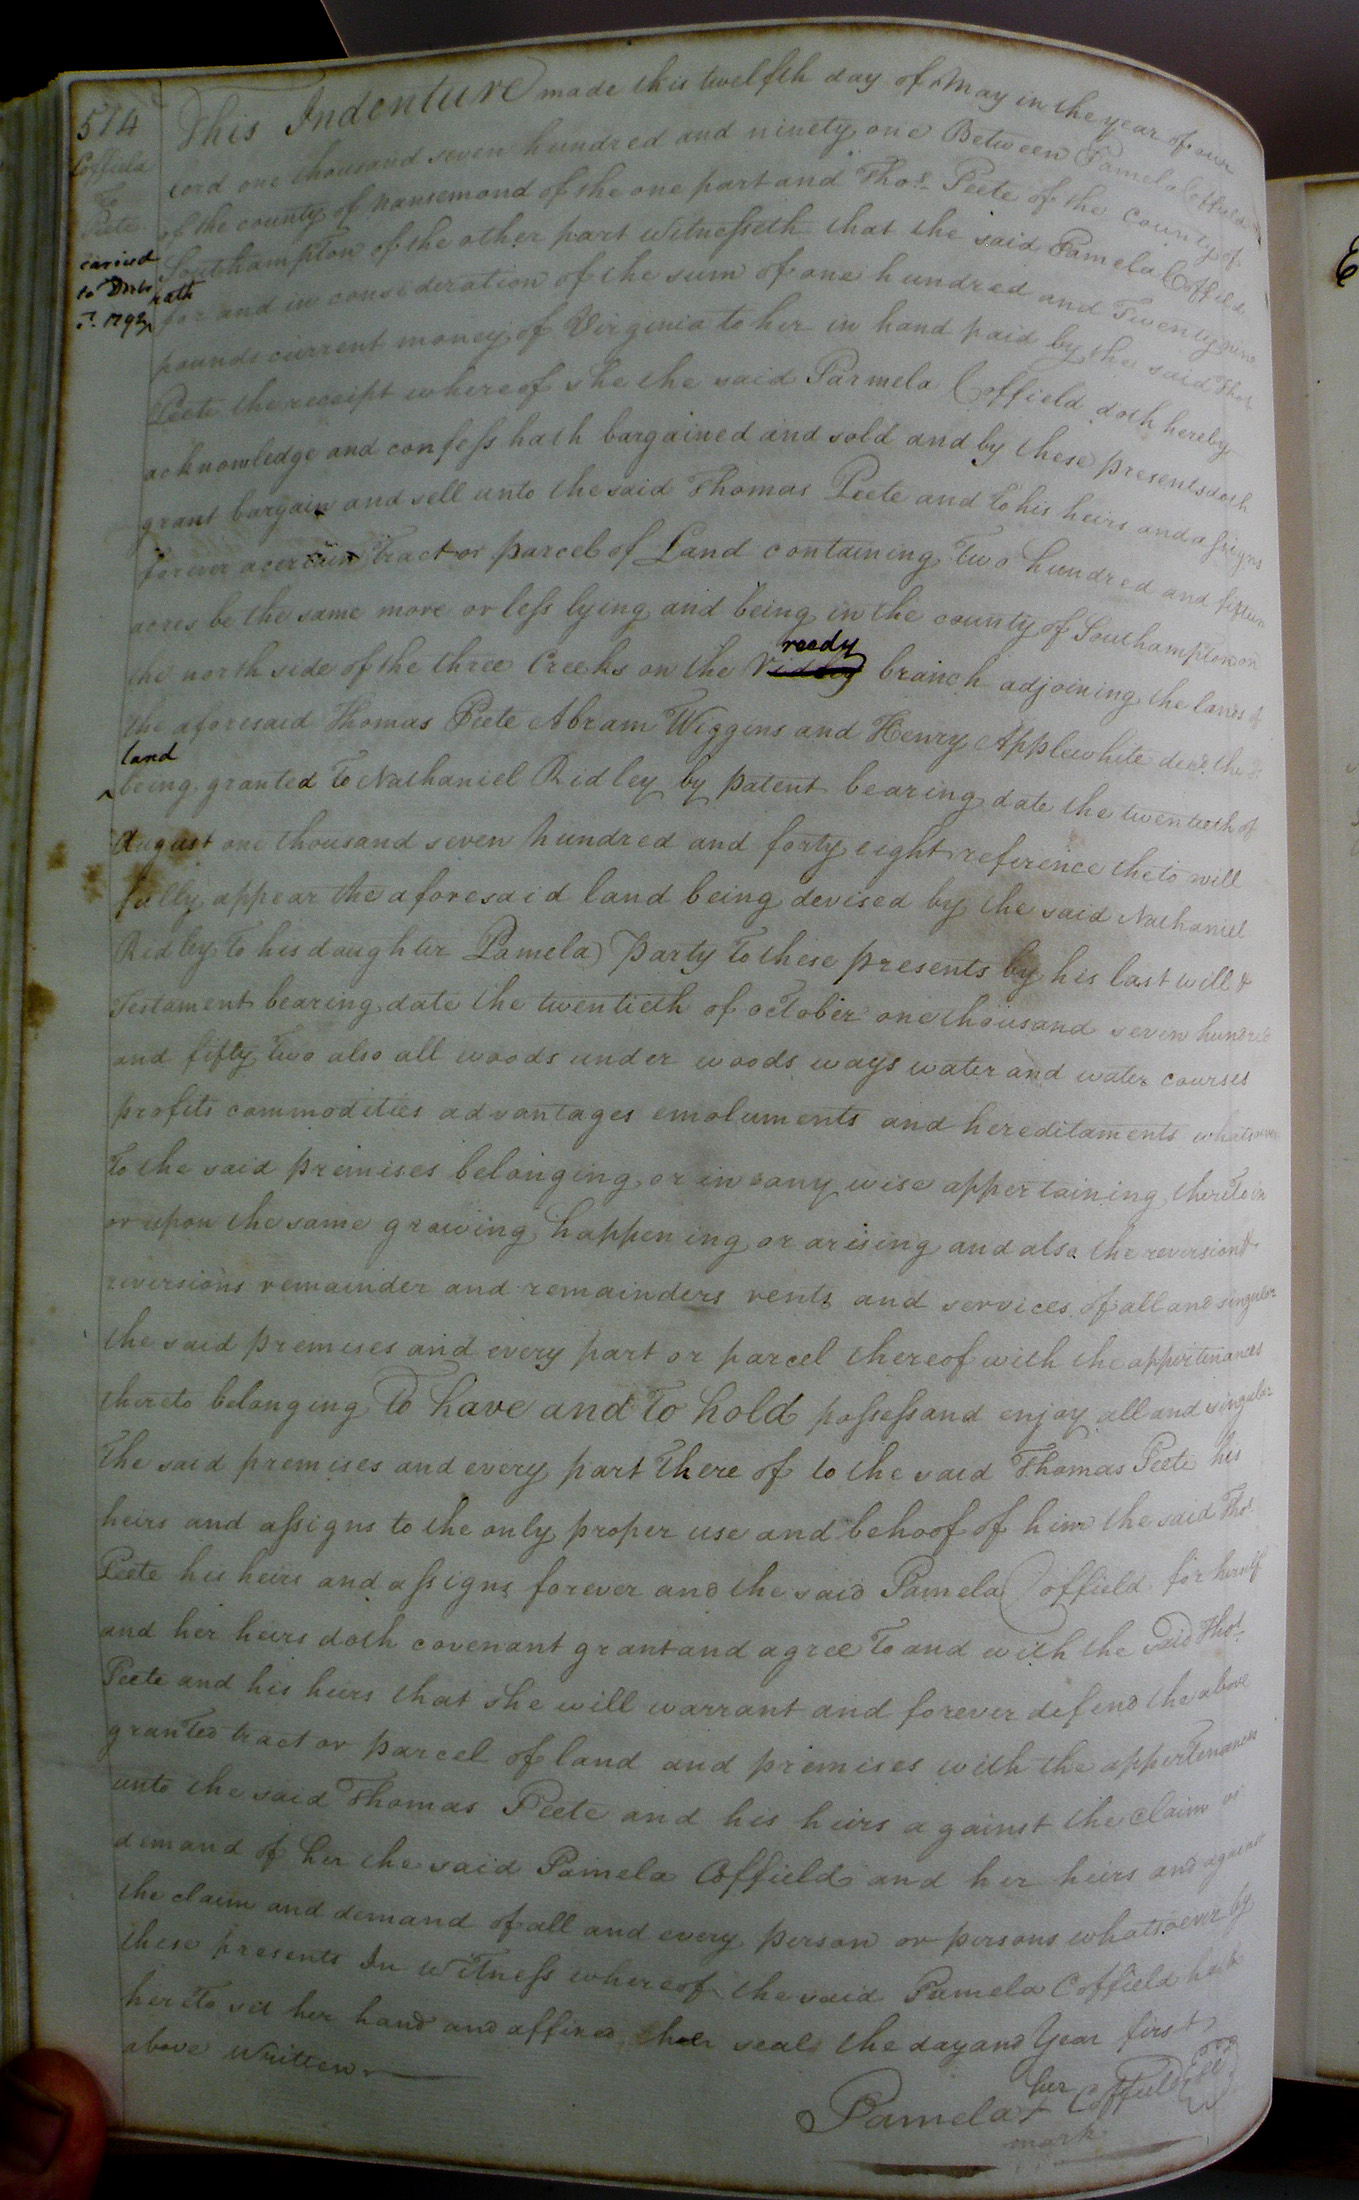 514
Coffield
To
Peete
carried
to Drs
7. 1792
This Indenture made this twelfth day of May in the year of our
Lord one thousand seven hundred and ninety one Between Pamela Coffield
of the county of Nansemond of the one part and Thos. Peete of the county of
Southampton of the other part Witnesseth that the said Pamela Coffield
hath
for and in consideration of the sum of one hundred and Twenty nine
pounds current money of Virginia to her in hand paid by the said Thos
Peete the receipt whereof she the said Parmela Coffield doth hereby
acknowledge and confess hath bargained and sold and by these presents doth
grant bargain and sell unto the said Thomas Peete and to his heirs and assigns
forever a certain Tract or parcel of Land containing Two hundred and fifteen
acres be the same more or less lying and being in the county of Southampton on
the north side of the three Creeks on the Ridley reedy branch adjoining the lands of
the aforesaid Thomas Peete Abram Wiggins and Henry Applewhite decd. the sd.
land
^ being granted to Nathaniel Ridley by patent bearing date the twentieth of
August one thousand seven hundred and forty eight reference theto will
fully appear the aforesaid land being devised by the said Nathaniel
Ridley To his daughter Pamela Party To these presents by his last will &
Testament bearing date the twentieth of october one thousand seven hundred
and fifty Two also all woods under woods ways water and water courses
profits commodities advantages emoluments and hereditaments whatsoever
To the said premises belonging or in any wise appertaining thereto in
or upon the same growing happening or arising and also the reversion &
reversions remainder and remainders rents and services of all and singular
the said premises and every part or parcel thereof with the appertenances
thereto belonging To have and To hold possess and enjoy all and singular
The said premises and every part There of to the said Thomas Peete his
heirs and assigns to the only proper use and behoof of him the said Thos.
Peete his heirs and assigns forever and the said Pamela Coffield for herself
and her heirs doth covenant grant and agree To and with the said Thos.
Peete and his heirs that she will warrant and forever defend the above
granted tract or parcel of land and premises with the appertenances
unto the said Thomas Peete and his heirs against the claim or
demand of her the said Pamela Coffield and her heirs and against
the claim and demand of all and every person or persons whatsoever by
these presents In Witness whereof the said Pamela Coffield hath
hereto set her hand and affixed her seal the day and Year first
above Written
her
Pamela + Coffield
mark